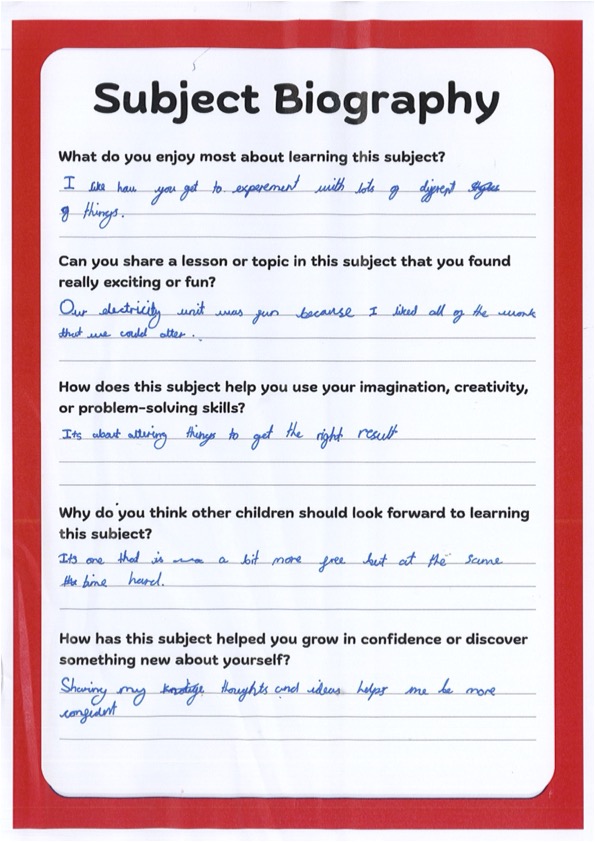 Subject Biography
What do you enjoy most about learning this subject?
I like how you get to experement with lots of diffrent
of things.
Can you share a lesson or topic in this subject that you found
really exciting or fun?
Our electricity unit was fun because I liked all of the work
that we could alter.
How does this subject help you use your imagination, creativity,
or problem-solving skills?
Its about altering things to get the right result
Why do you think other children should look forward to learning
this subject?
Its one that is a bit more free but at the same
time hard.
How has this subject helped you grow in confidence or discover
something new about yourself?
Sharing my thoughts and ideas helps me be more
confident